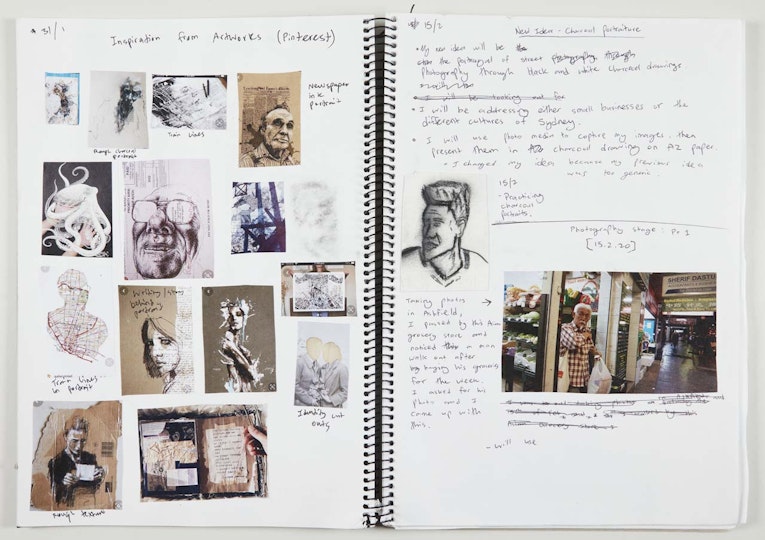 31/1
Inspiration from Artworks (Pinterest)
Newspaper
ink
portrait
Train Lines
Rough charcoal
portrait
Writing/
behind
portrait
Train Lines
in portrait
Identity cut
outs
Rough texture
15/2
New Idea - Charcoal portraiture
• My new idea will be the
the portrayal of street photography through
photography through black and white charcoal drawings
• I will be looking out for
• I will be addressing either small businesses or the
different cultures of Sydney.
• I will use photo media to capture my images. then
present them in A2 charcoal drawing on A2 paper.
• I changed my idea because my previous idea
was too generic.
15/2
- Practicing
charcoal
portraits.
Photography stage: Pt 1
[15.2.20]
SHERIF DASTU
Taking photos →
in Ashfield,
I passed by this Asian
grocery store and
noticed a man
walk out after
buying his groceries
for the week.
I asked for his
photo and I
came up with
this.
- will use